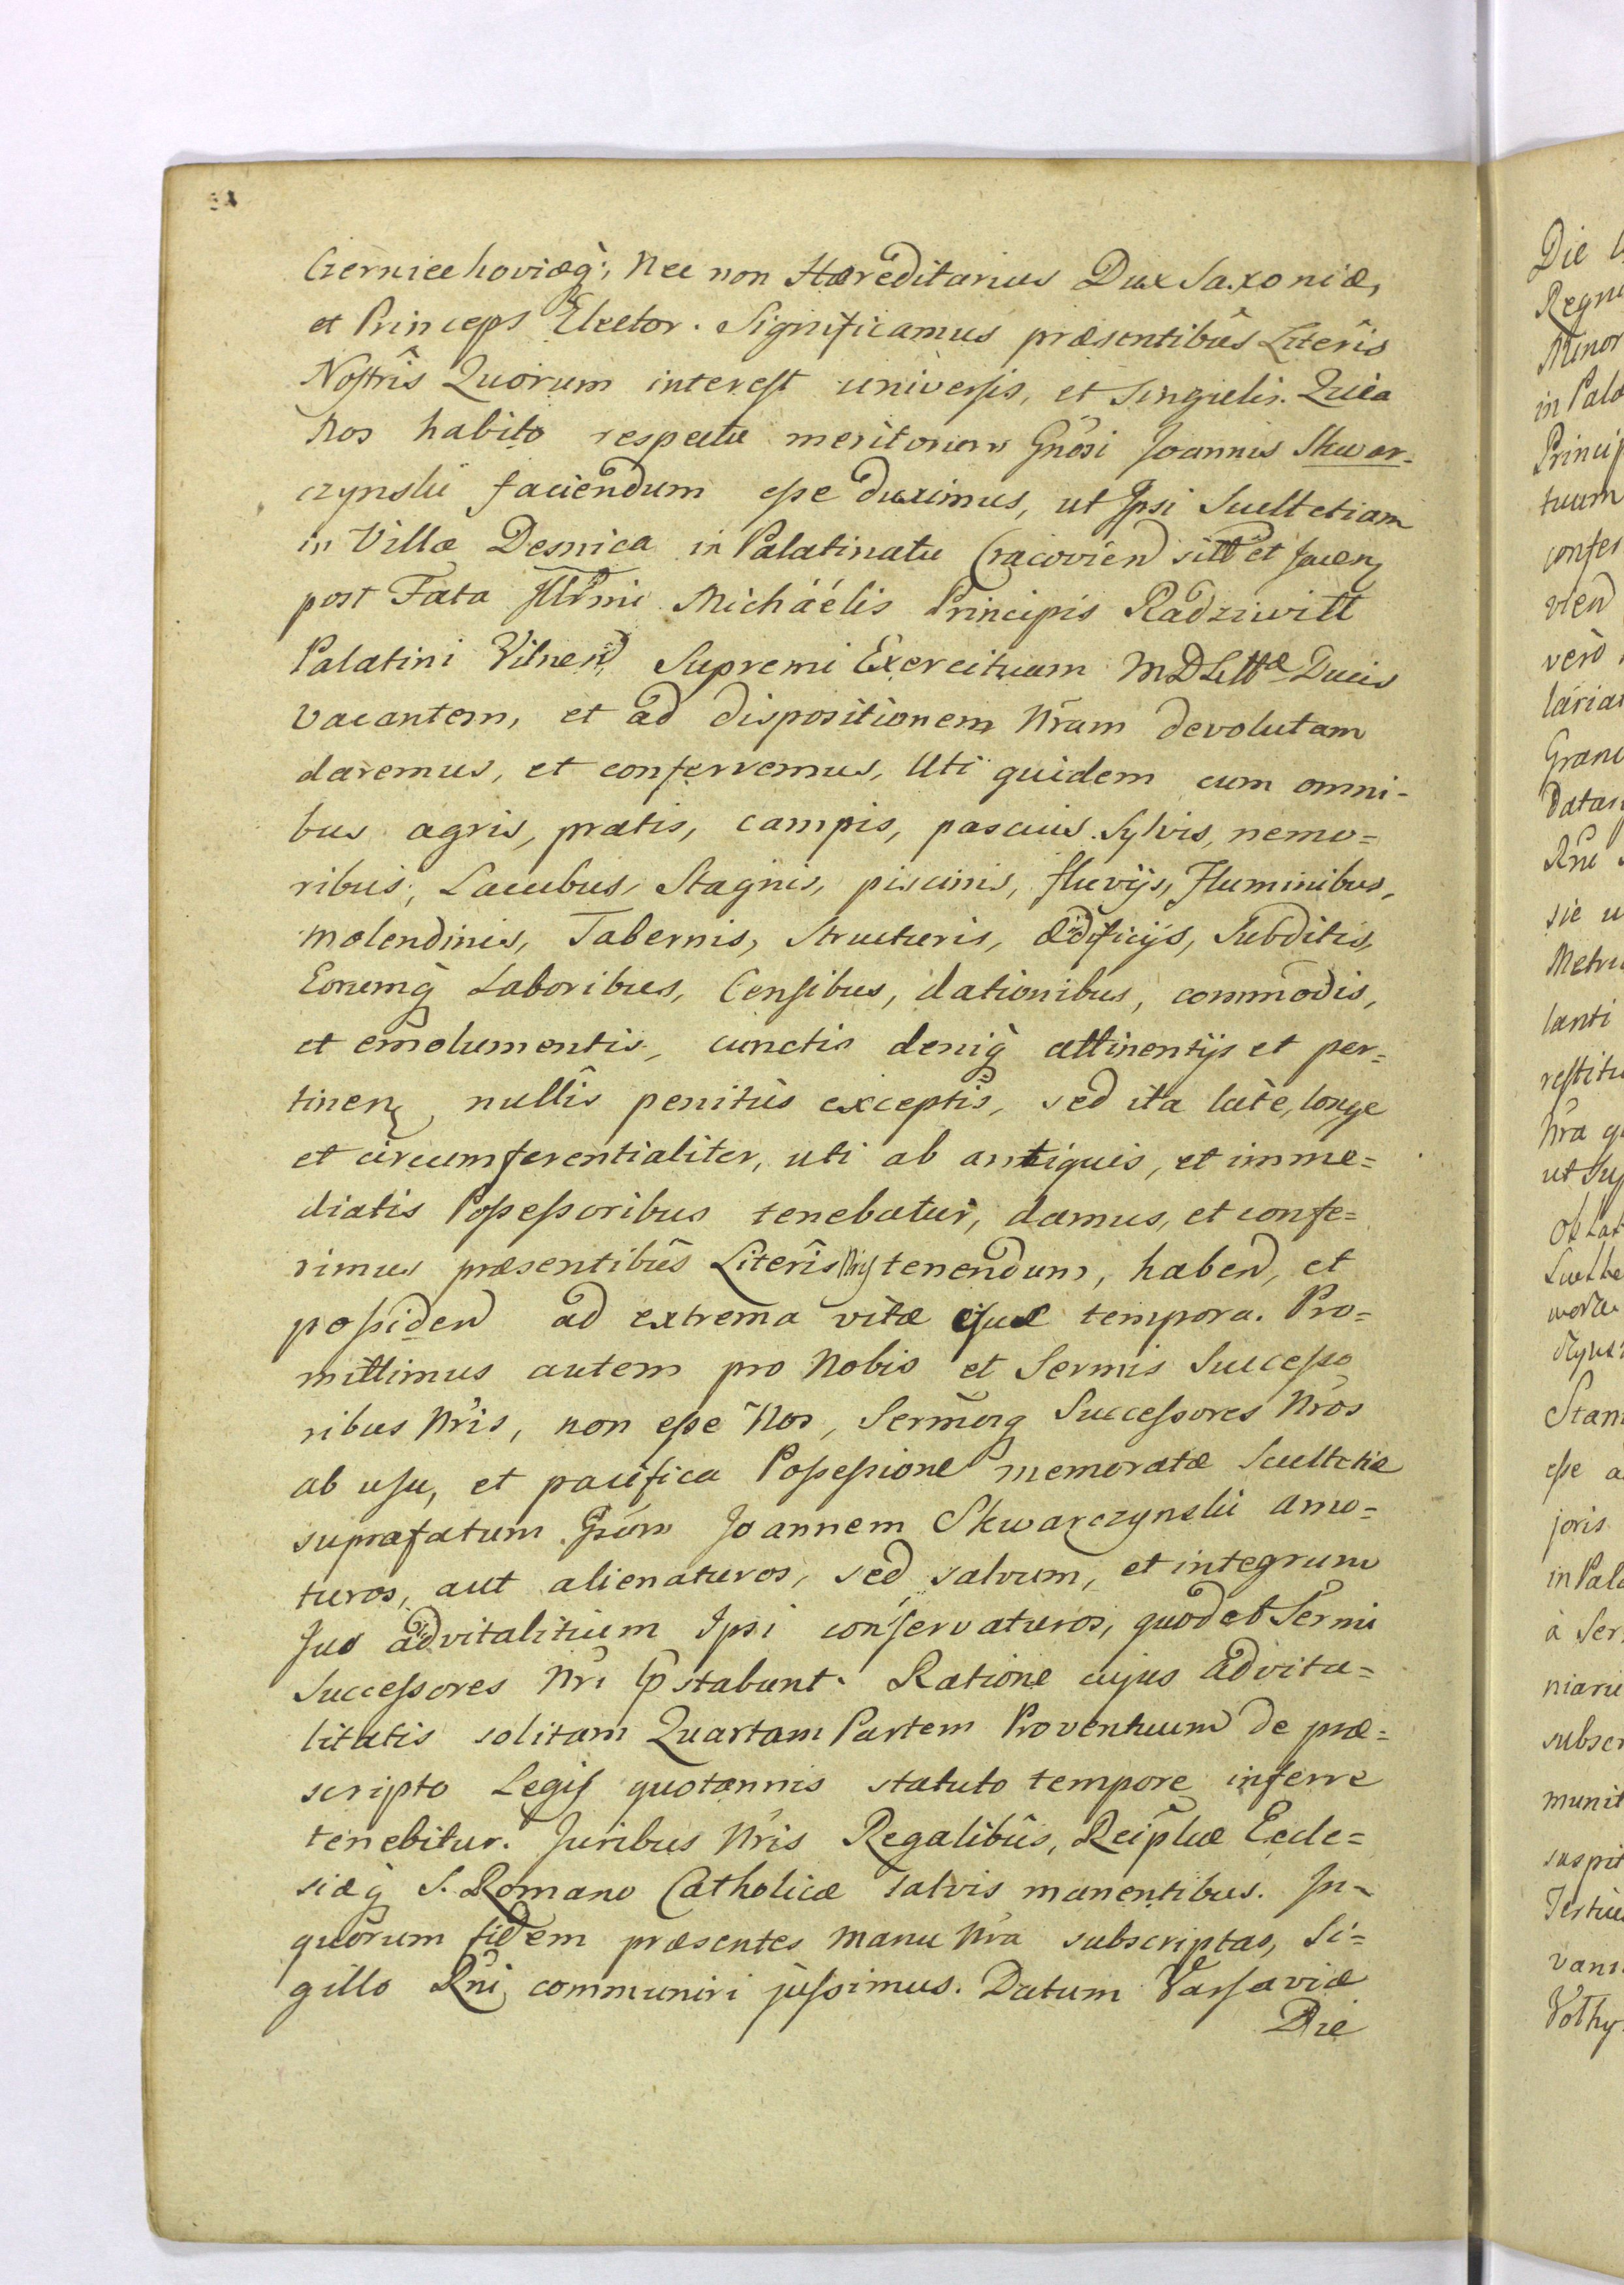 Czerniechoviæq̀, Nec non Hæreditarius Dux Saxoniæ,
et Princeps Elector. Significamus præsentibûs Literîs
Nostrîs Quorum interest universis, et singulis. Quia
Nos habito respectu meritorum Gnosi Joannis Skwar-
czynskii faciendum esse duximus, ut Ipsi Scultetiam
in Villa Desnica in Palatinatu Cracovien sitt et jacen
post Fata Illrmi Michaélis Principis Radziwill
Palatini Vilnen Supremi Exercituum MDLittæ Ducis
vacantem, et ad dispositionem Nram devolutam
daremus, et conferremus, Uti quidem cum omni-
bus agris, pratis, campis, pascuis. Sylvis, nemo=
ribus, Lacubus, Stagnis, piscinis, fluvijs, Fluminibus,
molendinis, Tabernis, structuris, ædificijs, Subditis,
Eorumq̀ Laboribus, Censibus, dationibus, commodis,
et emolumentis, cunctis deniq̀ attinentijs et per=
tinen, nullîs penitùs exceptîs, sed ita latè, longe
et circumferentialiter, uti ab antiquis, et imme=
diatis Possessoribus tenebatur, damus, et confe=
rimus præsentibûs Literîs Nris tenendum, haben, et
possiden ad extrema vitæ suæ tempora. Pro=
mittimus autem pro Nobis et Sermis Successo
ribus Nris, non esse Nos, Sermosq Successores Nros
ab usu, et pacifica Possessione memoratæ Scultetiæ
suprafatum Gsum Joannem Skwarczynskii amo=
turos, aut alienaturos, sed salvum, et integrum
Jus advitalitium Ipsi conservaturos, quod et Sermi
Successores Nri pstabunt. Ratione cujus advita=
litatis solitam Quartam Partem Proventuum de præ=
scripto Legis quotannis statuto tempore inferre
tenebitur. Juribus Nris Regalibûs, Reiplicæ Eccle=
siæq̀ S. Romano Catholicæ salvis manentibus. In-
quorum fidem præsentes manu Nra subscriptas, Si=
gillo Rni communiri jussimus. Datum Varsaviæ
Die
Die
Regn
Minor
in Pala
Princip
tuum
confer
vien
verò
lariat
Gran
Datas
Rni
sie u
Metri
lanti
restitu
Nra q
ut Sup
Oblat
Stan
esse a
joris
in Pala
à Ser
niaru
subscr
munit
suspit
vani